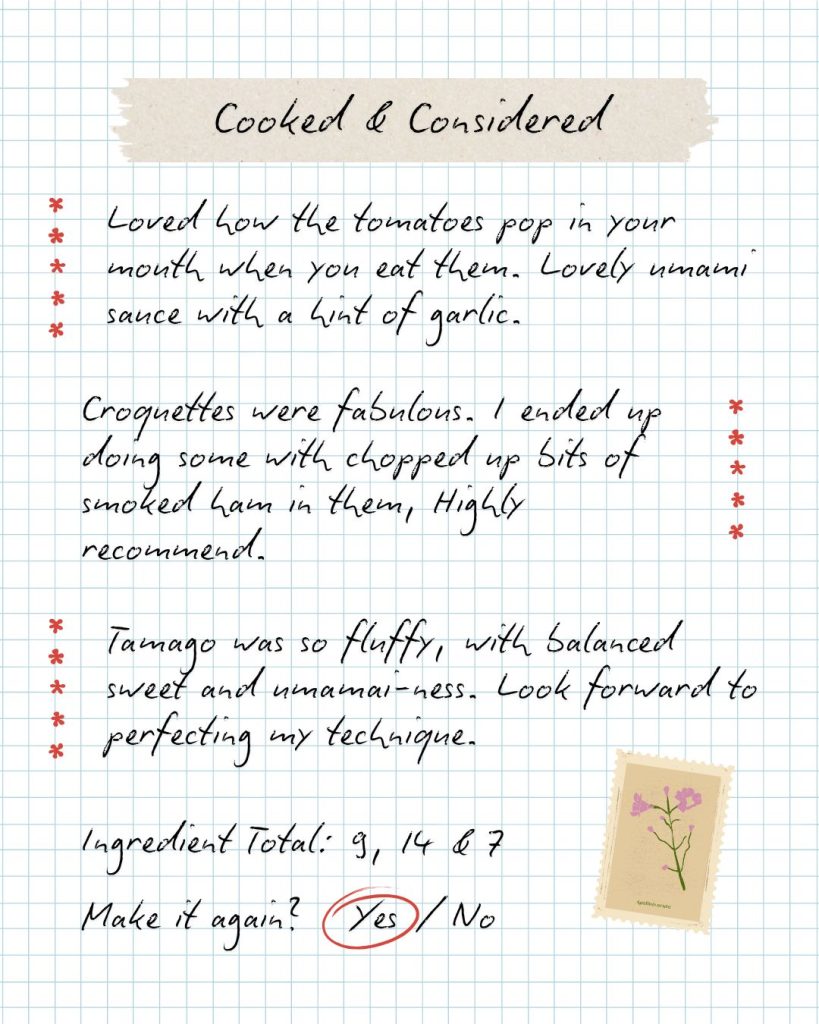 Cooked & Considered
Loved how the tomatoes pop in your
mouth when you eat them. Lovely umami
sauce with a hint of garlic.
Croquettes were fabulous. I ended up
doing some with chopped up bits of
smoked ham in them, Highly
recommend.
Tamago was so fluffy, with balanced
sweet and umamai-ness. Look forward to
perfecting my technique.
Ingredient Total: 9, 14 & 7
Make it again? Yes / No